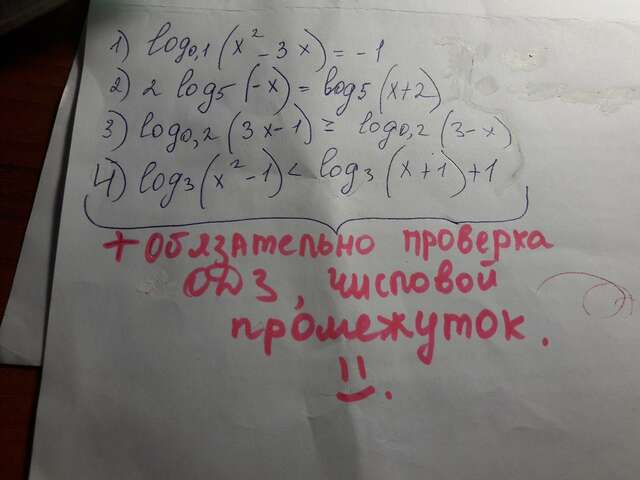 1) log₀,₁ (x² - 3x) = -1
2) 2 log₅ (-x) = log₅ (x+2)
3) log₀,₂ (3x-1) ≥ log₀,₂ (3-x)
4) log₃ (x² - 1) < log₃ (x+1) + 1
+ Обязательно проверка
ОДЗ, числовой
промежуток.